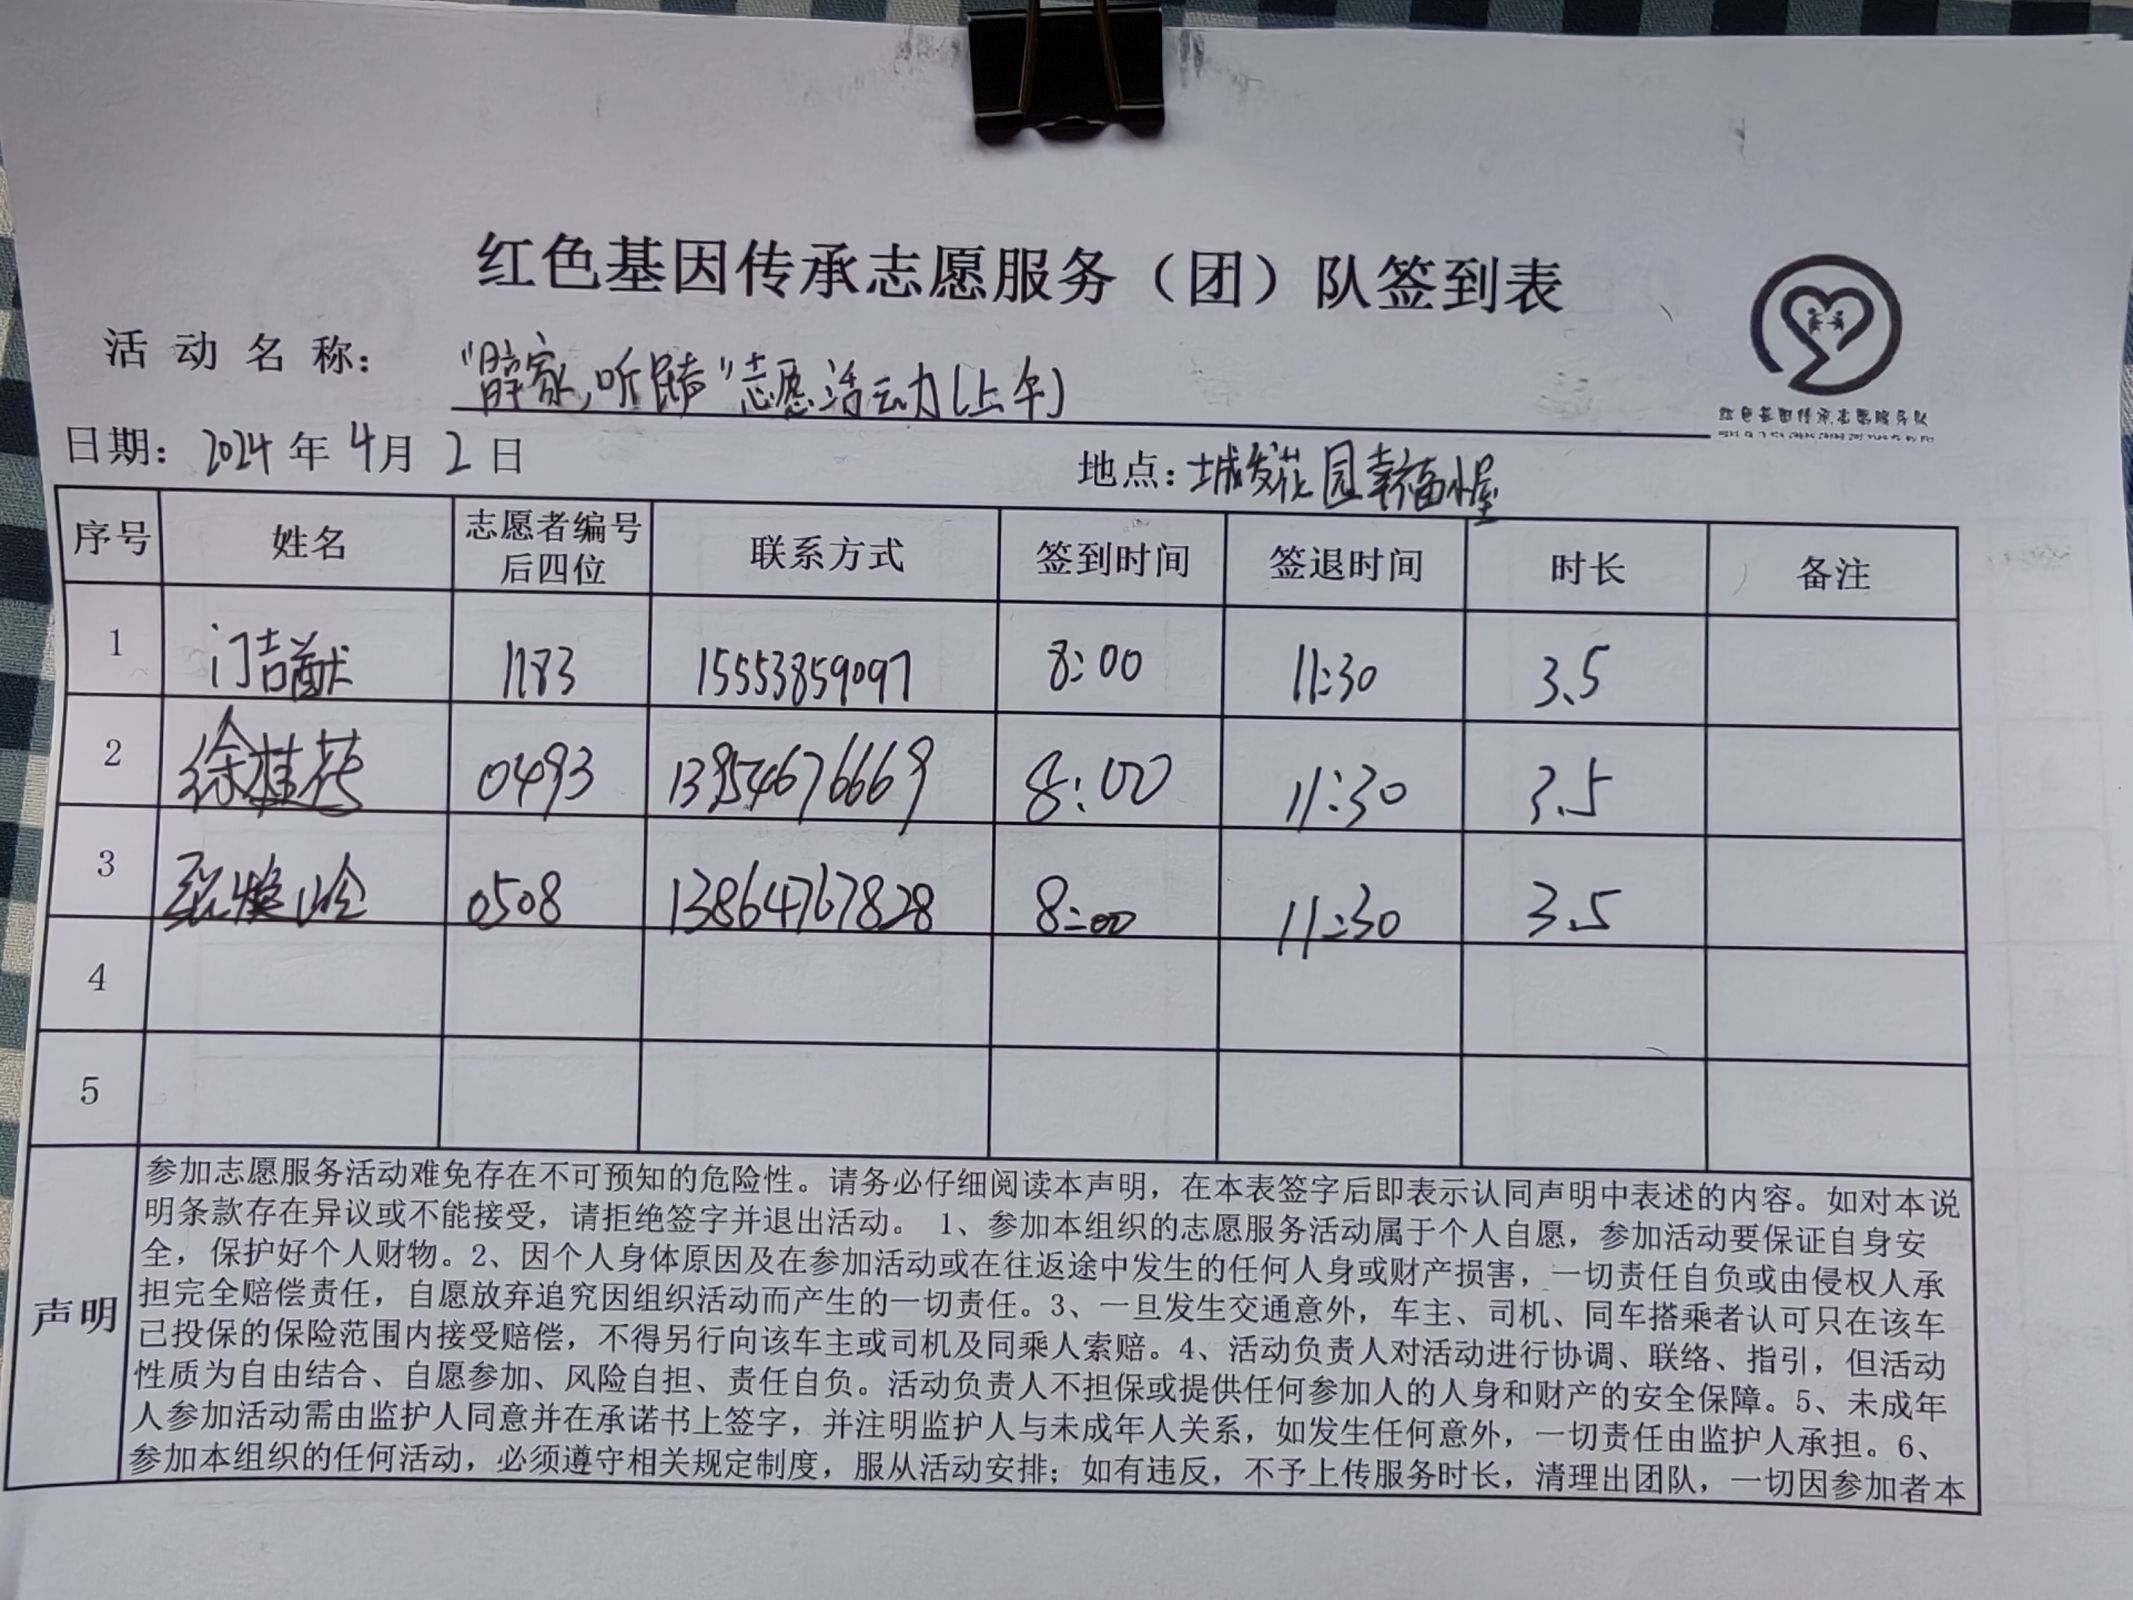 红色基因传承志愿服务（团）队签到表
活动名称： 家，听 "志愿活动(上午)
日期：2024年4月2日 地点：城发花园幸福小屋
序号 姓名 志愿者编号后四位 联系方式 签到时间 签退时间 时长 备注
1 门吉猷 1183 15553859097 8:00 11:30 3.5
2 徐桂花 0493 13954676669 8:00 11:30 3.5
3 0508 13864767828 8:00 11:30 3.5
4
5
声明
参加志愿服务活动难免存在不可预知的危险性。请务必仔细阅读本声明，在本表签字后即表示认同声明中表述的内容。如对本说
明条款存在异议或不能接受，请拒绝签字并退出活动。 1、参加本组织的志愿服务活动属于个人自愿，参加活动要保证自身安
全，保护好个人财物。2、因个人身体原因及在参加活动或在往返途中发生的任何人身或财产损害，一切责任自负或由侵权人承
担完全赔偿责任，自愿放弃追究因组织活动而产生的一切责任。3、一旦发生交通意外，车主、司机、同车搭乘者认可只在该车
已投保的保险范围内接受赔偿，不得另行向该车主或司机及同乘人索赔。4、活动负责人对活动进行协调、联络、指引，但活动
性质为自由结合、自愿参加、风险自担、责任自负。活动负责人不担保或提供任何参加人的人身和财产的安全保障。5、未成年
人参加活动需由监护人同意并在承诺书上签字，并注明监护人与未成年人关系，如发生任何意外，一切责任由监护人承担。6、
参加本组织的任何活动，必须遵守相关规定制度，服从活动安排；如有违反，不予上传服务时长，清理出团队，一切因参加者本